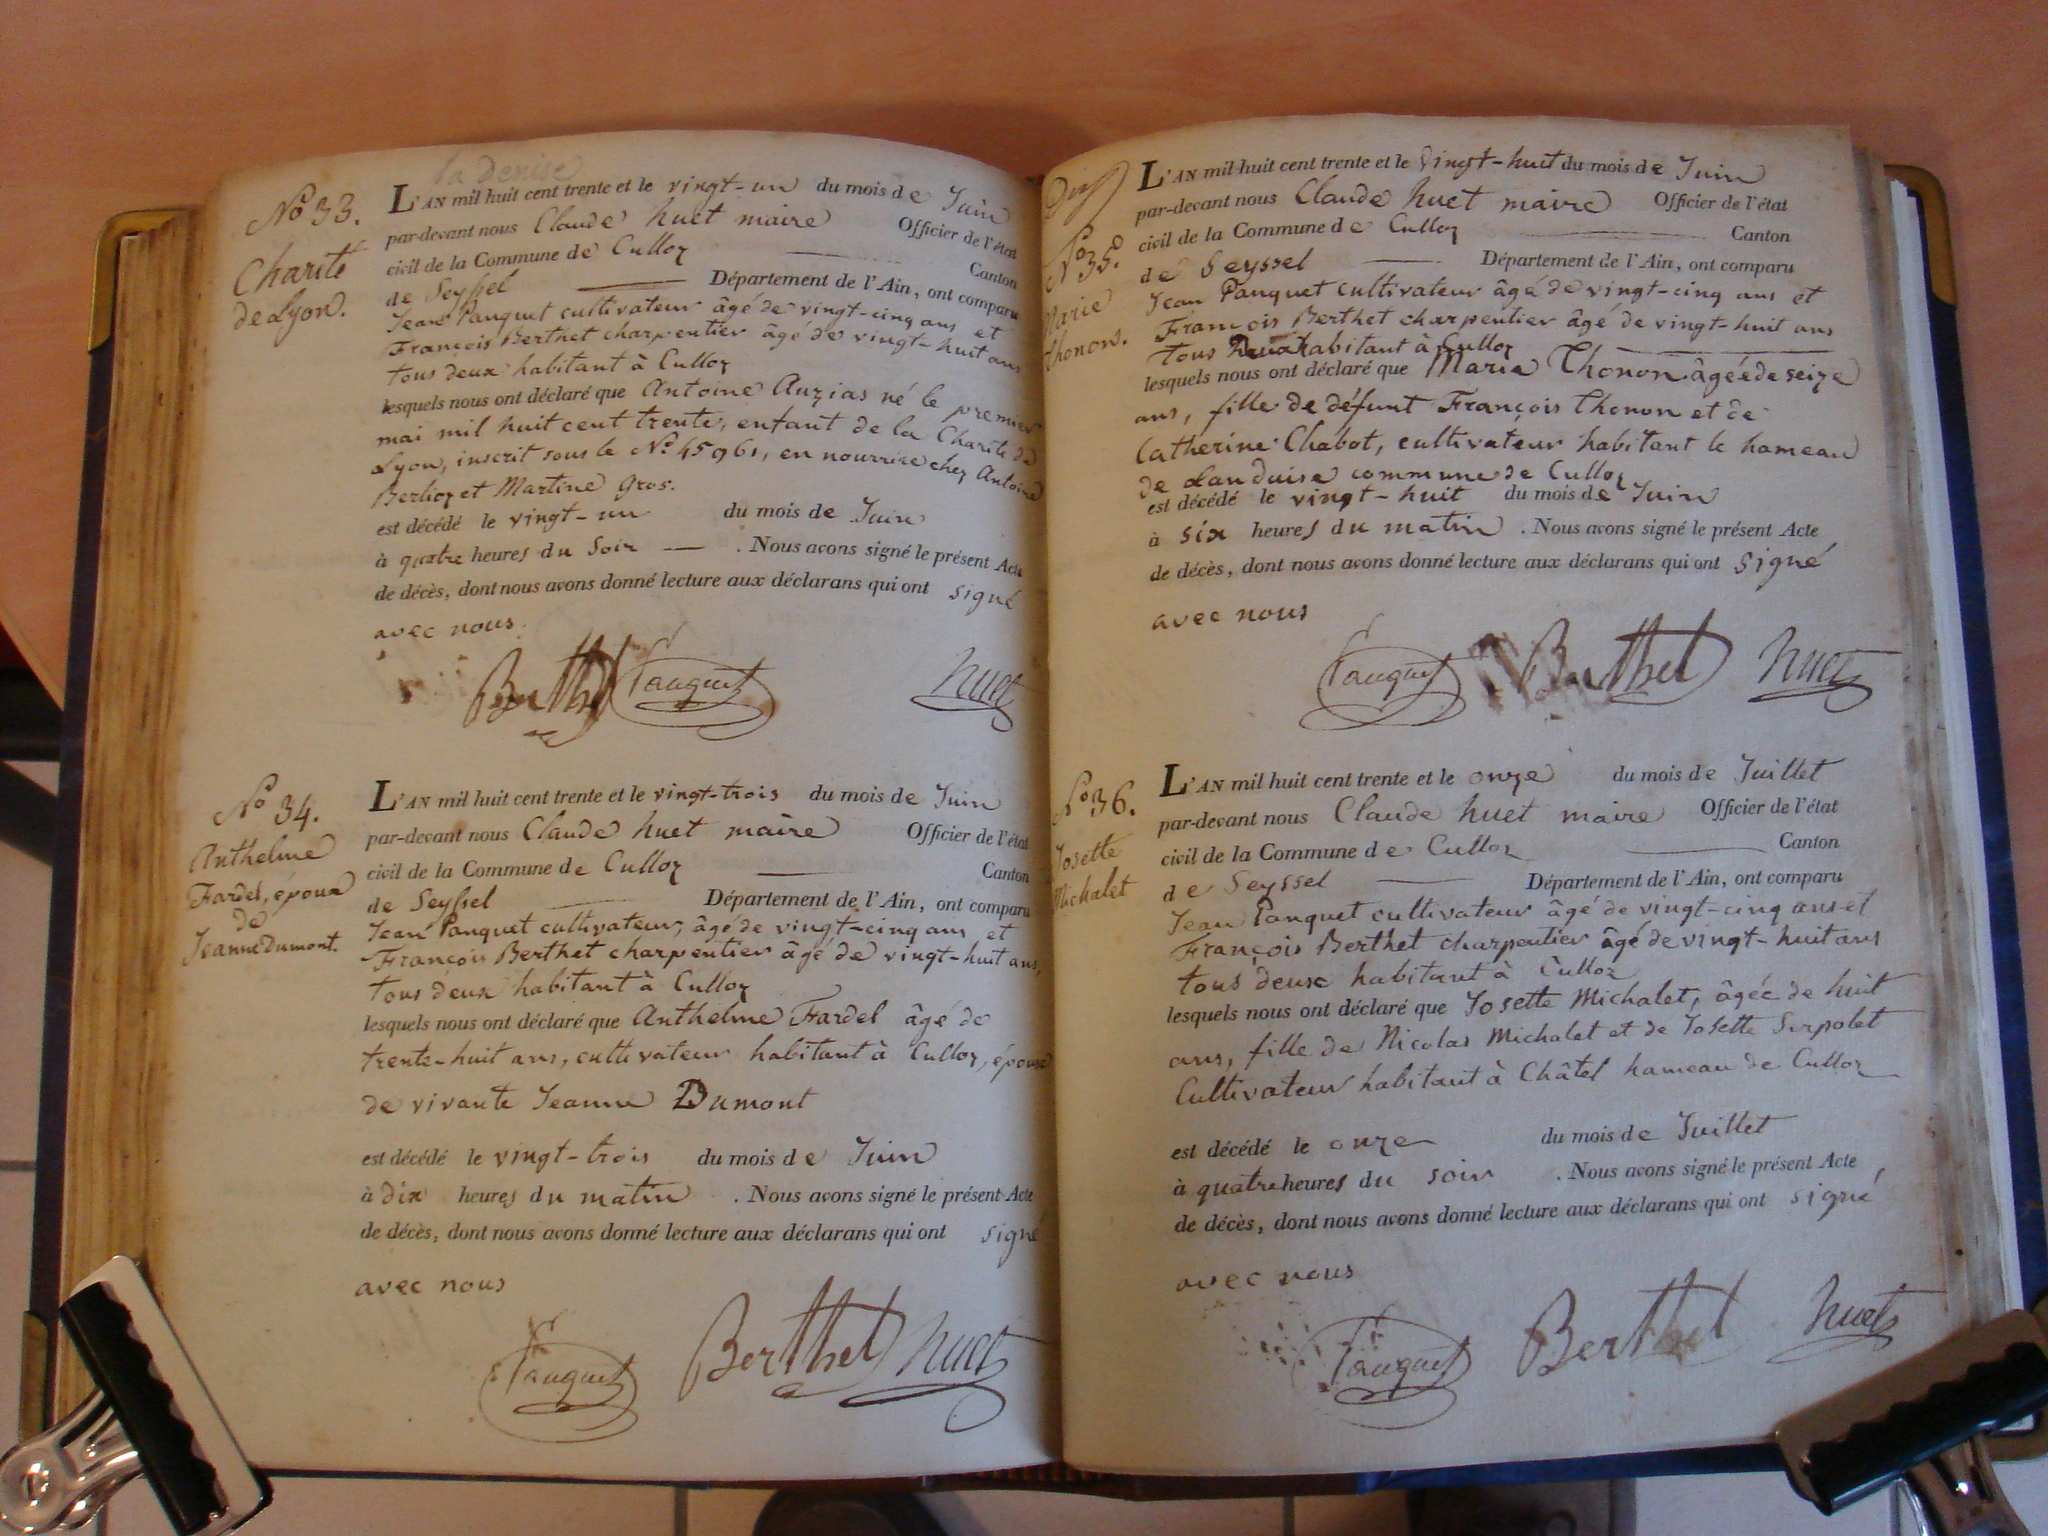 la Denise
N° 33.
Charité
de Lyon.
L'AN mil huit cent trente et le vingt-un du mois de Juin
par-devant nous Claude huet maire Officier de l'état
civil de la Commune de Culloz Canton
de Seyssel Département de l'Ain, ont comparu
Jean Panquet cultivateur âgé de vingt-cinq ans et
François Berthet charpentier âgé de vingt-huit ans
tous deux habitant à Culloz
lesquels nous ont déclaré que Antoine Auzias né le premier
mai mil huit cent trente, enfant de la Charité de
Lyon, inscrit sous le N° 45961, en nourrice chez Antoine
Berlioz et Martine Gros.
est décédé le vingt-un du mois de Juin
à quatre heures du Soir . Nous avons signé le présent Acte
de décès, dont nous avons donné lecture aux déclarans qui ont signé
avec nous.
Berthet Panquet huet
N° 34.
Anthelme
Fardel, époux
de
Jeanne Dumont.
L'AN mil huit cent trente et le vingt-trois du mois de Juin
par-devant nous Claude huet maire Officier de l'état
civil de la Commune de Culloz Canton
de Seyssel Département de l'Ain, ont comparu
Jean Panquet cultivateur, âgé de vingt-cinq ans et
François Berthet charpentier âgé de vingt-huit ans,
tous deux habitant à Culloz
lesquels nous ont déclaré que Anthelme Fardel âgé de
trente-huit ans, cultivateur habitant à Culloz, époux
de vivante Jeanne Dumont
est décédé le vingt-trois du mois de Juin
à dix heures du matin . Nous avons signé le présent Acte
de décès, dont nous avons donné lecture aux déclarans qui ont signé
avec nous
Panquet Berthet huet
N° 35.
Marie
thonon.
L'AN mil huit cent trente et le Vingt-huit du mois de Juin
par-devant nous Claude huet maire Officier de l'état
civil de la Commune de Culloz Canton
de Seyssel Département de l'Ain, ont comparu
Jean Panquet cultivateur âgé de vingt-cinq ans et
François Berthet charpentier âgé de vingt-huit ans
tous Deux habitant à Culloz
lesquels nous ont déclaré que Marie Thonon âgée de seize
ans, fille de défunt François Thonon et de
Catherine Chabot, cultivateur habitant le hameau
de Landaise commune de Culloz
est décédé le vingt-huit du mois de Juin
à six heures du matin . Nous avons signé le présent Acte
de décès, dont nous avons donné lecture aux déclarans qui ont signé
avec nous
Panquet Berthet huet
N° 36.
Josette
Michalet
L'AN mil huit cent trente et le onze du mois de Juillet
par-devant nous Claude huet maire Officier de l'état
civil de la Commune de Culloz Canton
de Seyssel Département de l'Ain, ont comparu
Jean Panquet cultivateur âgé de vingt-cinq ans et
François Berthet charpentier âgé de vingt-huit ans
tous deux habitant à Culloz
lesquels nous ont déclaré que Josette Michalet, âgée de huit
ans, fille de Nicolas Michalet et de Josette Serpolet
Cultivateur habitant à Châtel hameau de Culloz
est décédé le onze du mois de Juillet
à quatre heures du soir . Nous avons signé le présent Acte
de décès, dont nous avons donné lecture aux déclarans qui ont signé
avec nous
Panquet Berthet huet